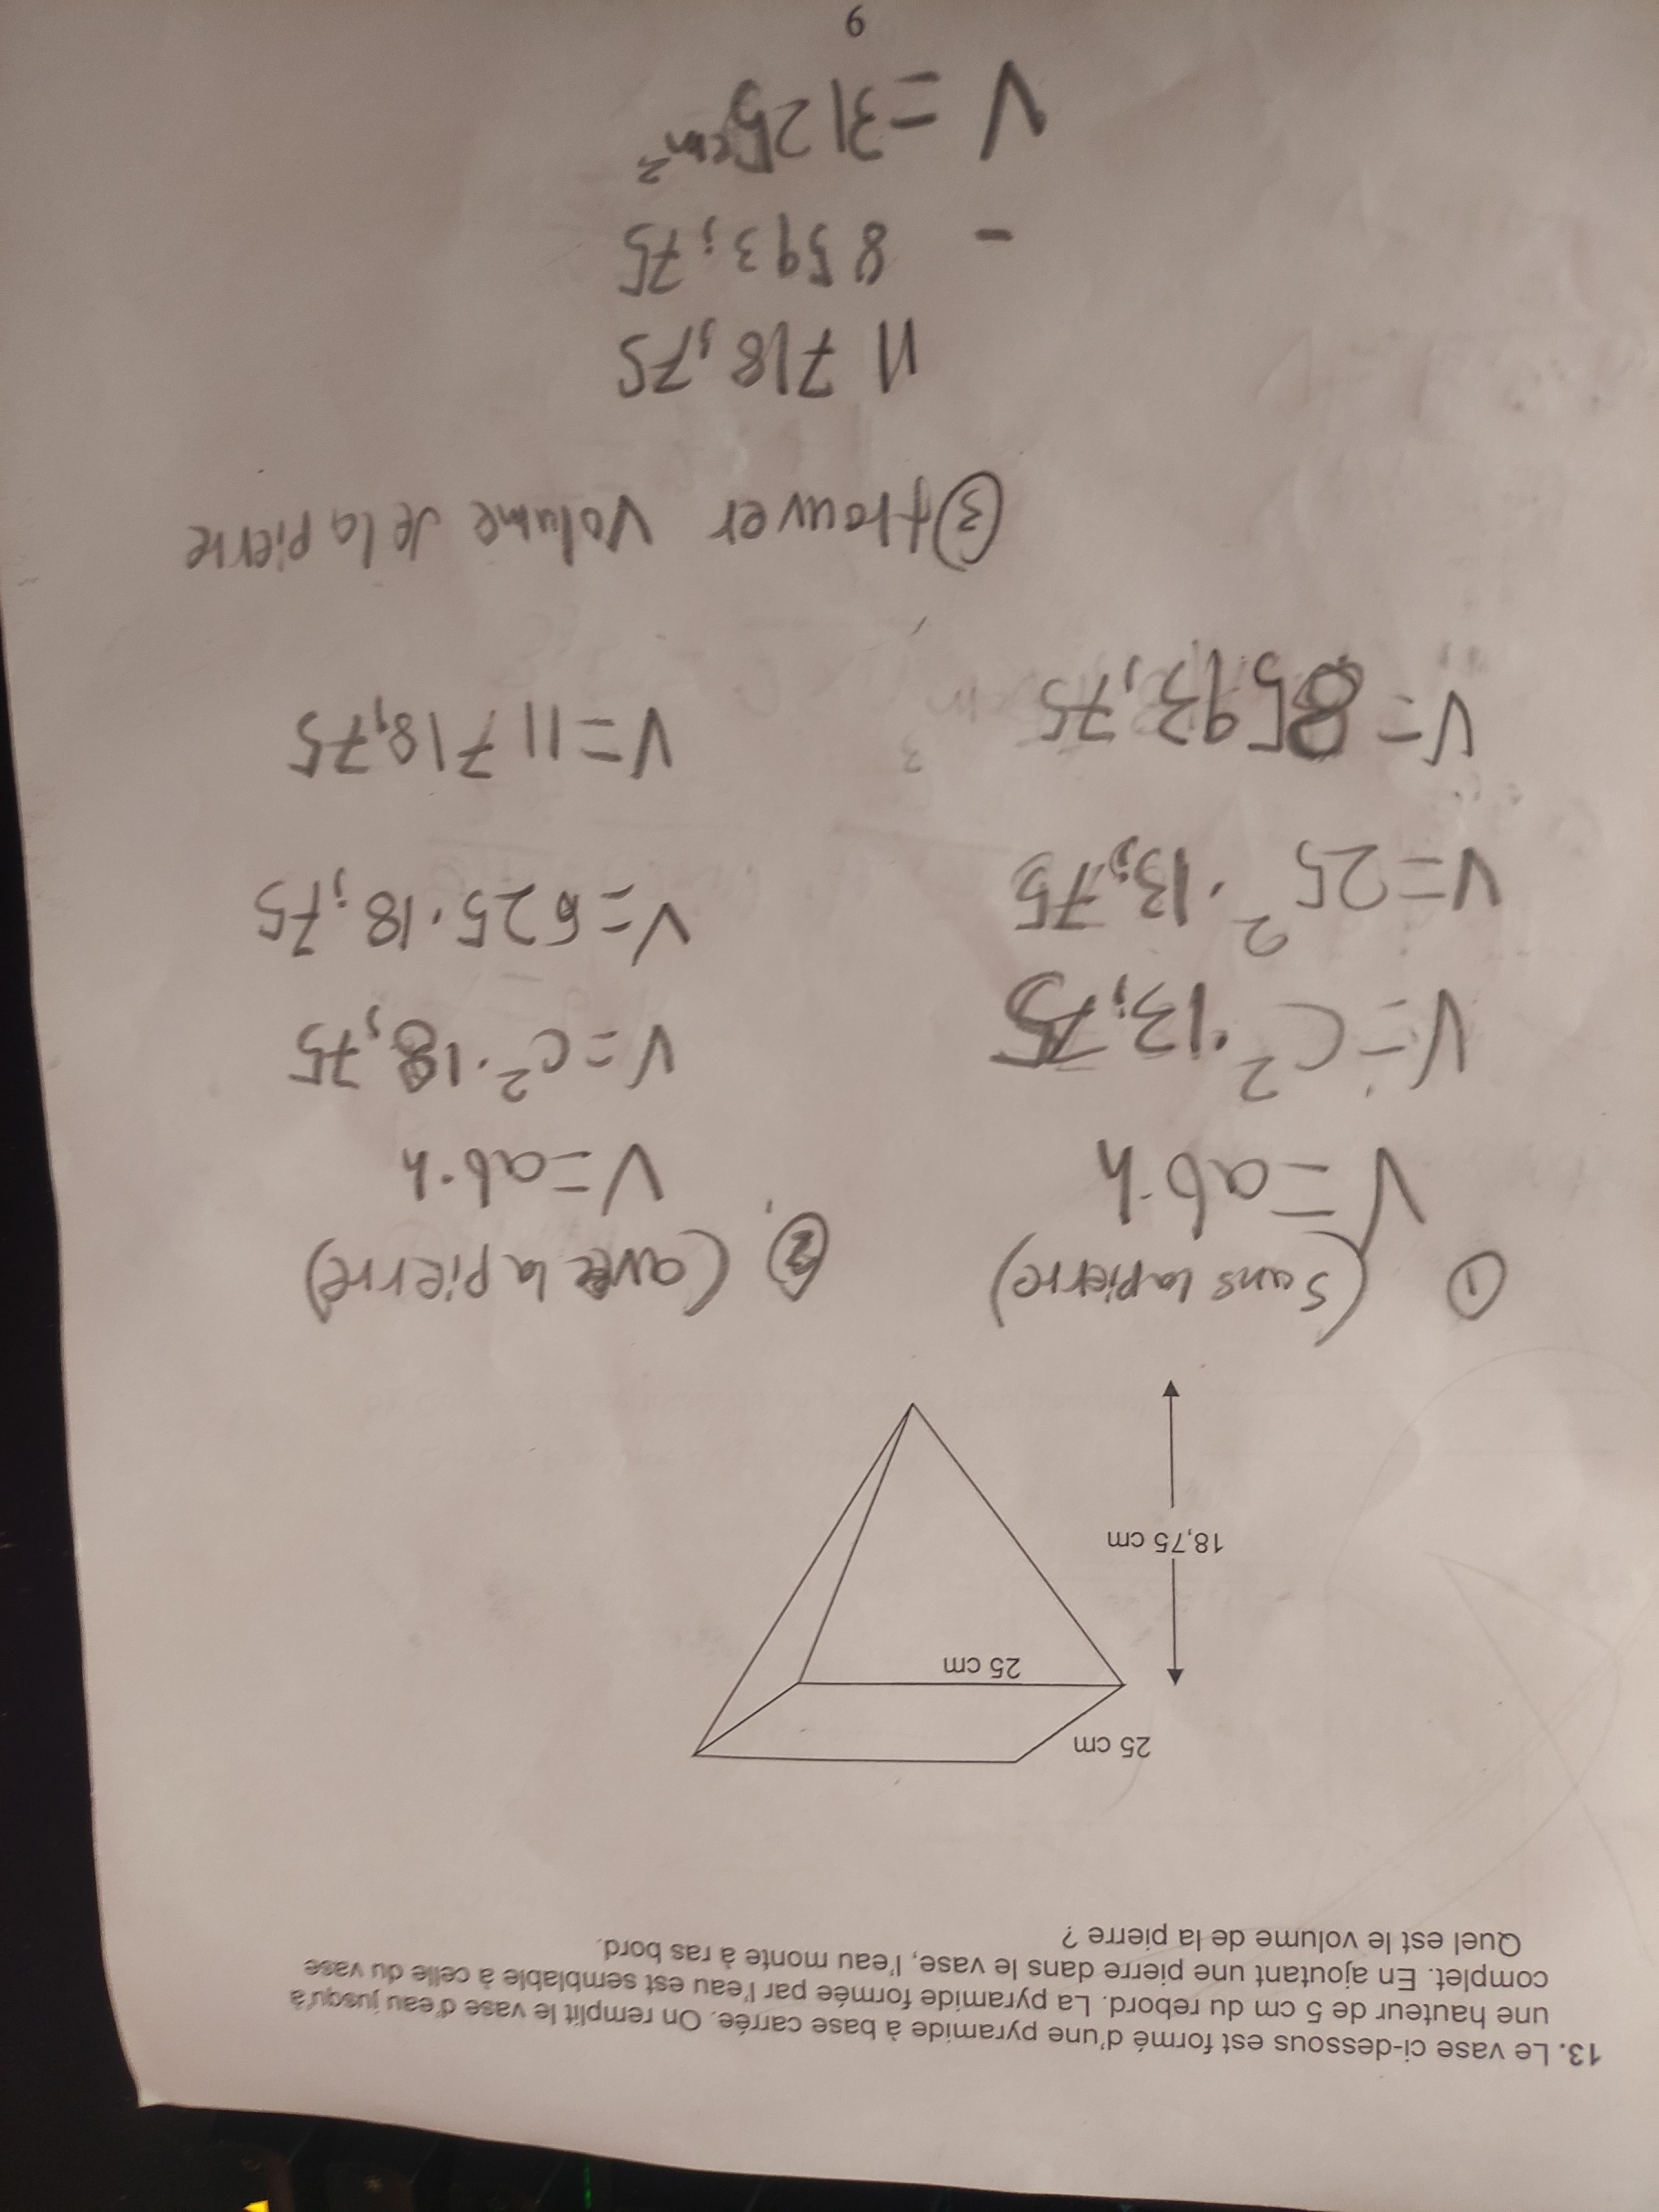 13. Le vase ci-dessous est formé d'une pyramide à base carrée. On remplit le vase d'eau jusqu'à
une hauteur de 5 cm du rebord. La pyramide formée par l'eau est semblable à celle du vase
complet. En ajoutant une pierre dans le vase, l'eau monte à ras bord.
Quel est le volume de la pierre ?
25 cm
25 cm
18,75 cm
① (sans la pierre)
V=ab·h
V=c²·13,75
V=25²·13,75
V=8593,75
② (avec la pierre)
V=ab·h
V=c²·18,75
V=625·18,75
V=11718,75
③ trouver volume de la pierre
11 718,75
- 8593,75
V=3125cm²
9